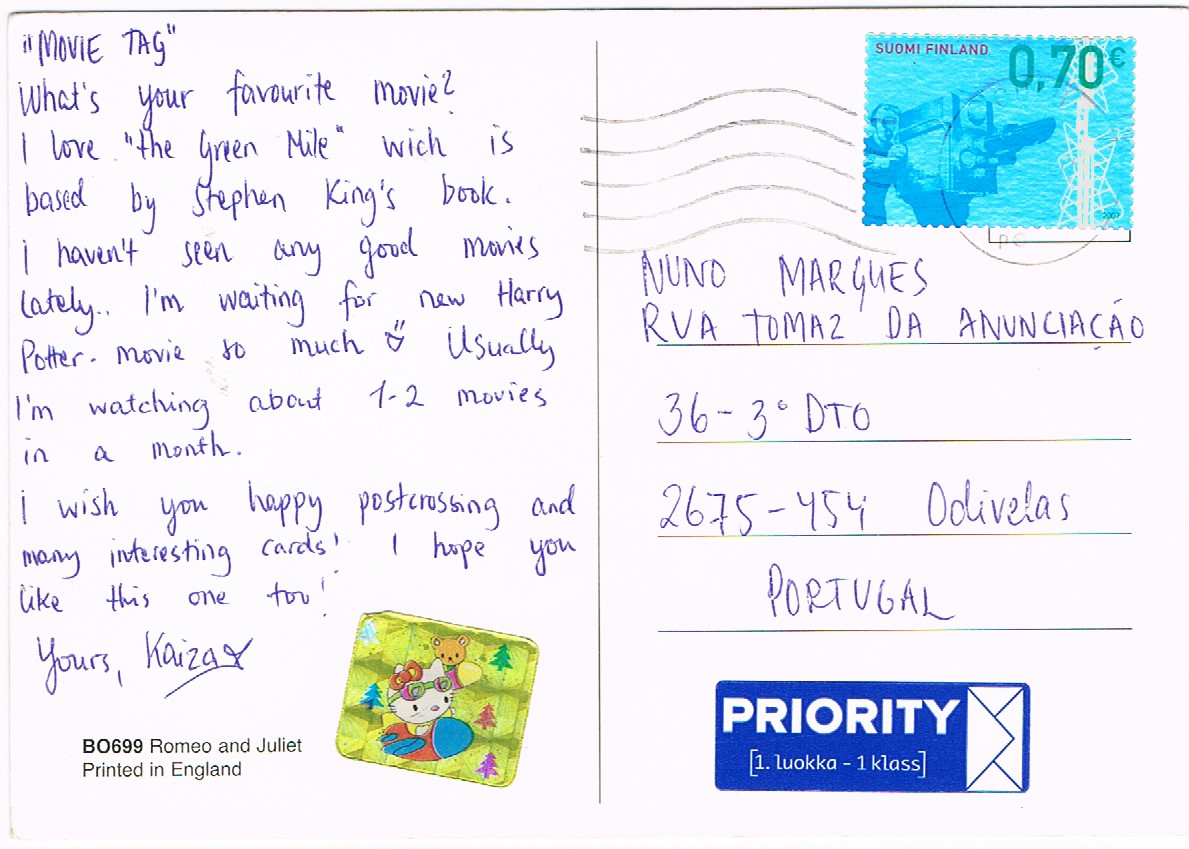 "MOVIE TAG"
What's your favourite movie?
I love "the Green Mile" wich is
based by Stephen King's book.
I haven't seen any good movies
lately.. I'm waiting for new Harry
Potter- movie so much Usually
I'm watching about 1-2 movies
in a month.
I wish you happy postcrossing and
many interesting cards! I hope you
like this one too!
Yours, Kaiza
BO699 Romeo and Juliet
Printed in England
SUOMI FINLAND
0,70€
2007
NUNO MARQUES
RUA TOMAZ DA ANUNCIAÇÃO
36-3° DTO
2675-454 Odivelas
PORTUGAL
PRIORITY
[1. luokka - 1 klass]